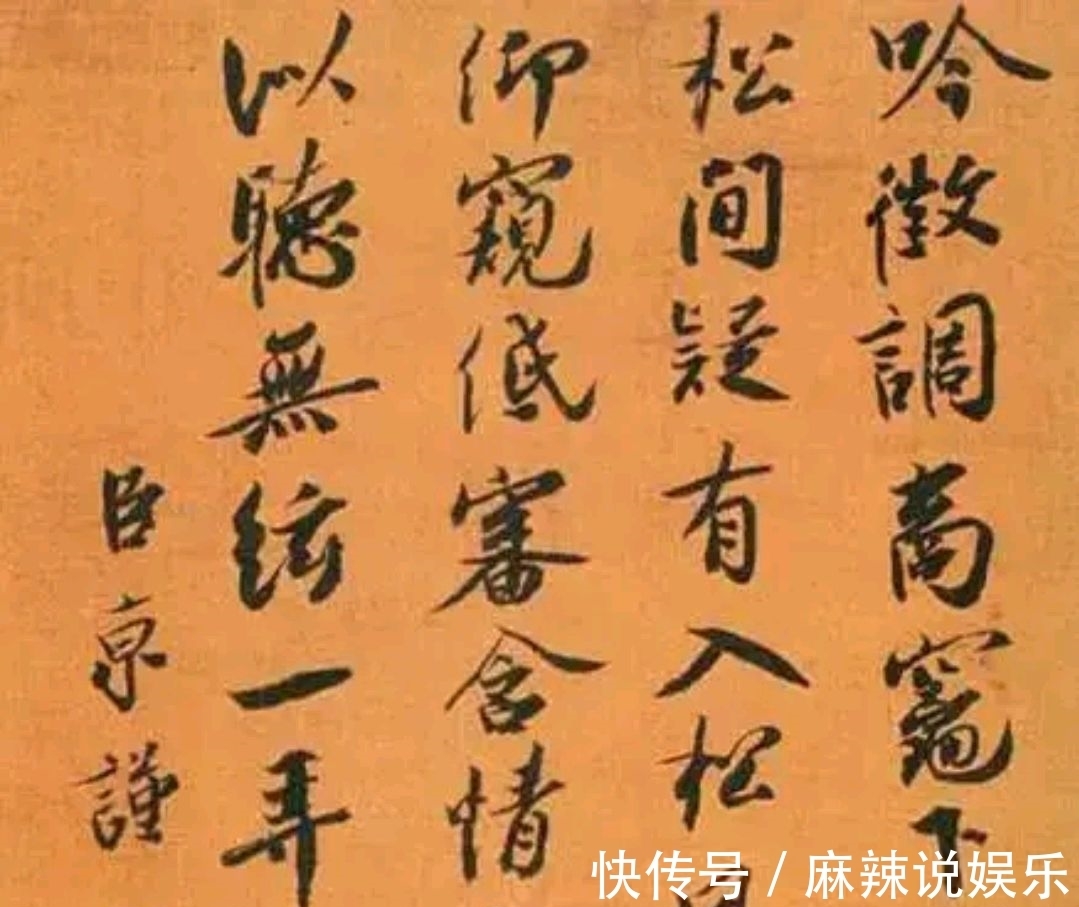 吟徵調商竈下
松間疑有入松
仰窺低審含情
以聽無絃一弄
臣京謹
快传号 / 麻辣说娱乐